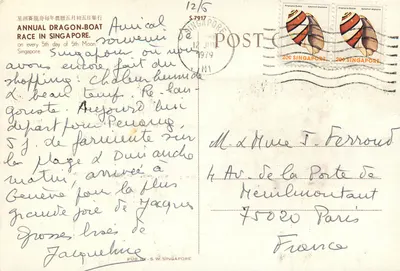 12/5
S.7917
ANNUAL DRAGON-BOAT
RACE IN SINGAPORE.
on every 5th day of 5th Moon
Singapore
POST C
1979
SINGAPORE
SINGAPORE
Amical
souvenir de
Singapour où nous
avons encore fait du
shopping: chaleur humide
& beau temps. Re-lan-
gouste. Aujourd'hui
départ pour Penang
5 j. de farniente sur
la plage & Dimanche
matin, arrivée à
Genève, pour la plus
grande joie de Jacques
Grosses bises de
Jacqueline
M. & Mme J. Ferroud
4 Av. de la Porte de
Ménilmontant
75020 Paris
France
S.W. SINGAPORE